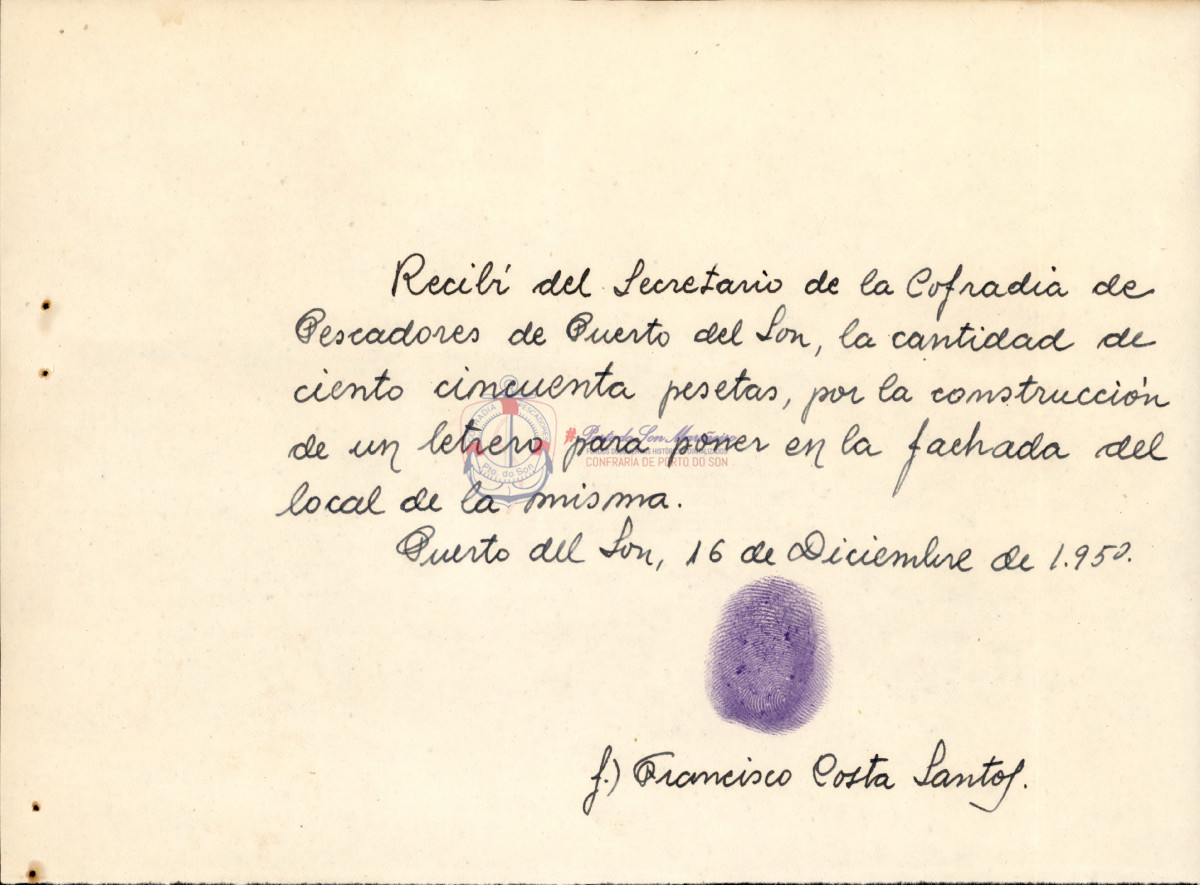 Recibí del Secretario de la Cofradia de
Pescadores de Puerto del Son, la cantidad de
ciento cincuenta pesetas, por la construcción
de un letrero para poner en la fachada del
local de la misma.
Puerto del Son, 16 de Diciembre de 1.950.
f.) Francisco Costa Santos.
#Porto do Son Mariñeiro
CONFRARÍA DE PORTO DO SON
Pto. do Son